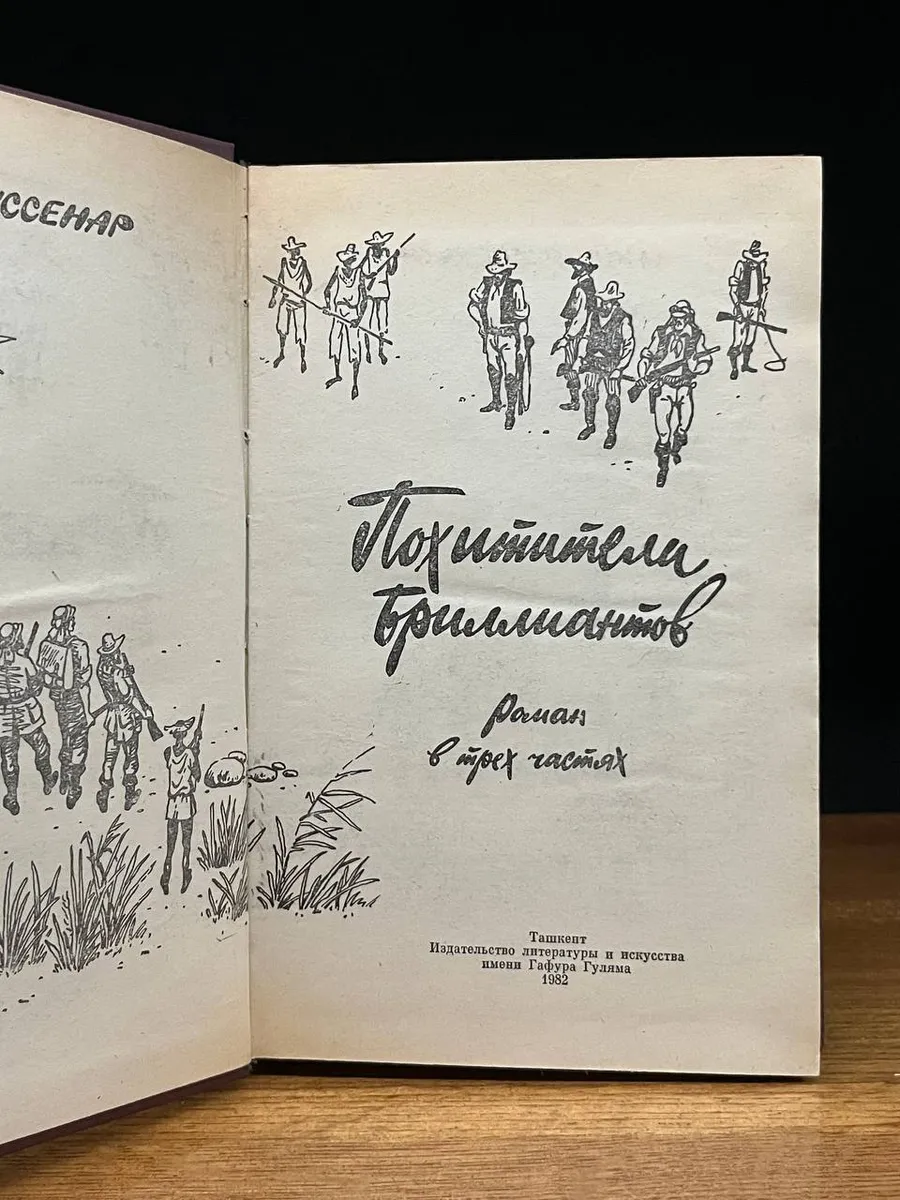 ССЕНАР
Похитители
Бриллиантов
роман
в трех частях
Ташкент
Издательство литературы и искусства
имени Гафура Гуляма
1982